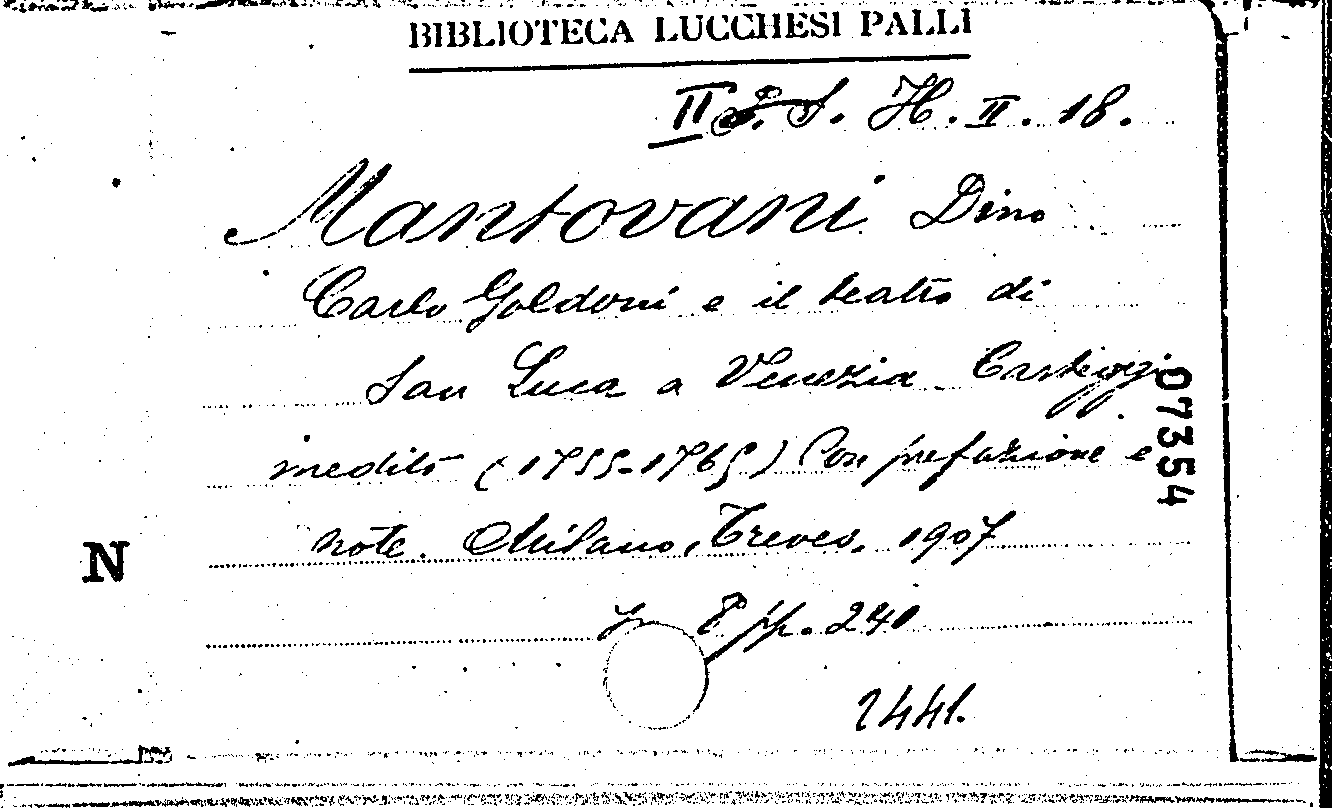 BIBLIOTECA LUCCHESI PALLI
II S. H. II. 18.
Mantovani Dino
Carlo Goldoni e il teatro di
San Luca a Venezia Carteggi
inedito (1755-1765) Con prefazione e
note. Milano, Treves, 1907
In 8 pp. 240
2441.
07354
N